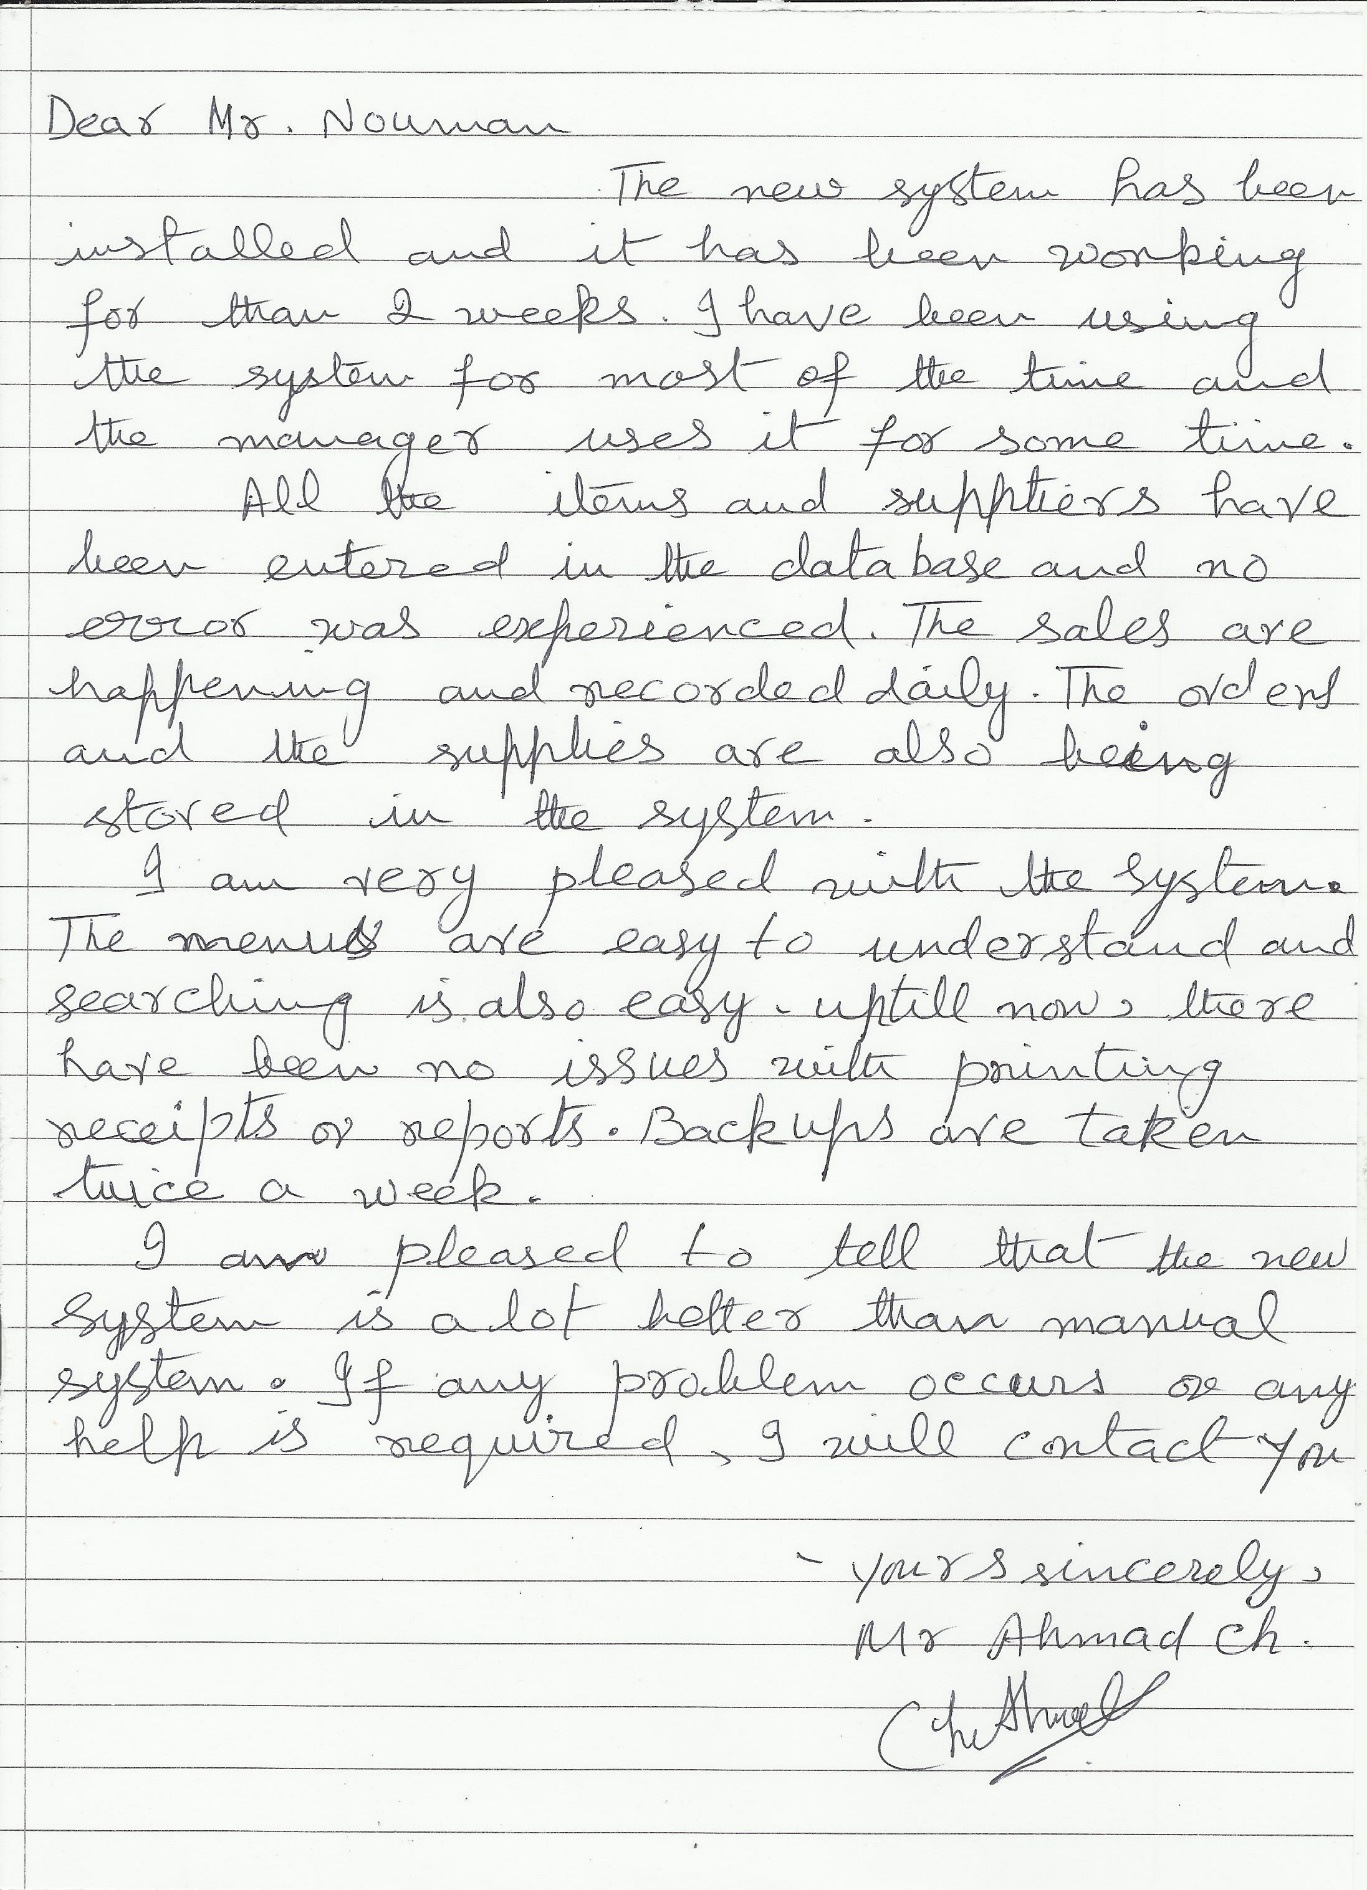 Dear Mr. Nouman
The new system has been
installed and it has been working
for than 2 weeks. I have been using
the system for most of the time and
the manager uses it for some time.
All the items and suppliers have
been entered in the database and no
error was experienced. The sales are
happening and recorded daily. The orders
and the supplies are also being
stored in the system.
I am very pleased with the system.
The menus are easy to understand and
searching is also easy. uptill now, there
have been no issues with printing
receipts or reports. Backups are taken
twice a week.
I am pleased to tell that the new
system is a lot better than manual
system. If any problem occurs or any
help is required, I will contact you
- yours sincerely,
Mr Ahmad Ch.
Ch Ahmad